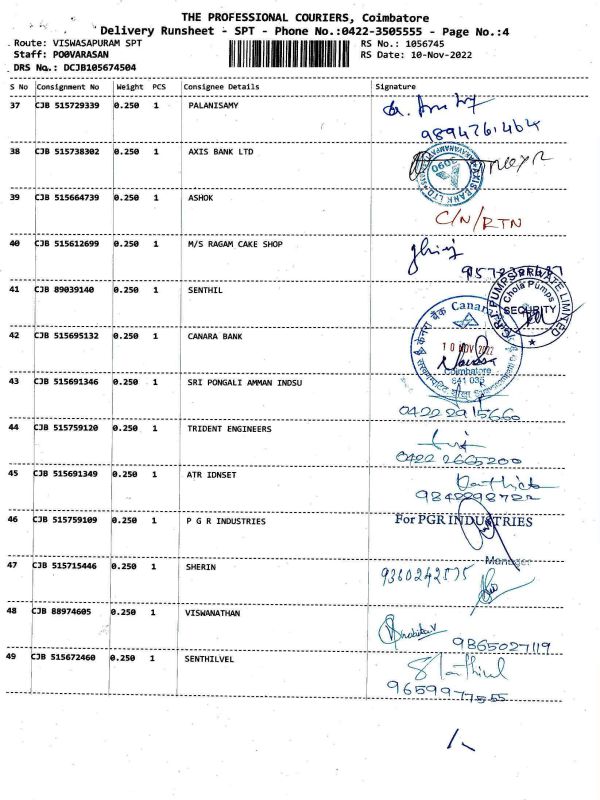 THE PROFESSIONAL COURIERS, Coimbatore
Delivery Runsheet - SPT - Phone No.:0422-3505555 - Page No.:4
Route: VISWASAPURAM SPT RS No.: 1056745
Staff: POOVARASAN RS Date: 10-Nov-2022
DRS No.: DCJB105674504
S No Consignment No Weight PCS Consignee Details Signature
37 CJB 515729339 0.250 1 PALANISAMY
9894761464
38 CJB 515738302 0.250 1 AXIS BANK LTD
AXIS BANK LTD
39 CJB 515664739 0.250 1 ASHOK
C/N/RTN
40 CJB 515612699 0.250 1 M/S RAGAM CAKE SHOP
41 CJB 89039140 0.250 1 SENTHIL
PUMPS PRIVATE LIMITED
Chola Pumps
SECURITY
42 CJB 515695132 0.250 1 CANARA BANK
केनरा बैंक Canara
10 NOV 2022
Coimbatore
641 035
43 CJB 515691346 0.250 1 SRI PONGALI AMMAN INDSU
0422 2915660
44 CJB 515759120 0.250 1 TRIDENT ENGINEERS
0422 2665200
45 CJB 515691349 0.250 1 ATR IDNSET
46 CJB 515759109 0.250 1 P G R INDUSTRIES For PGR INDUSTRIES
Manager
47 CJB 515715446 0.250 1 SHERIN
48 CJB 88974605 0.250 1 VISWANATHAN
9865027119
49 CJB 515672460 0.250 1 SENTHILVEL
9659977555